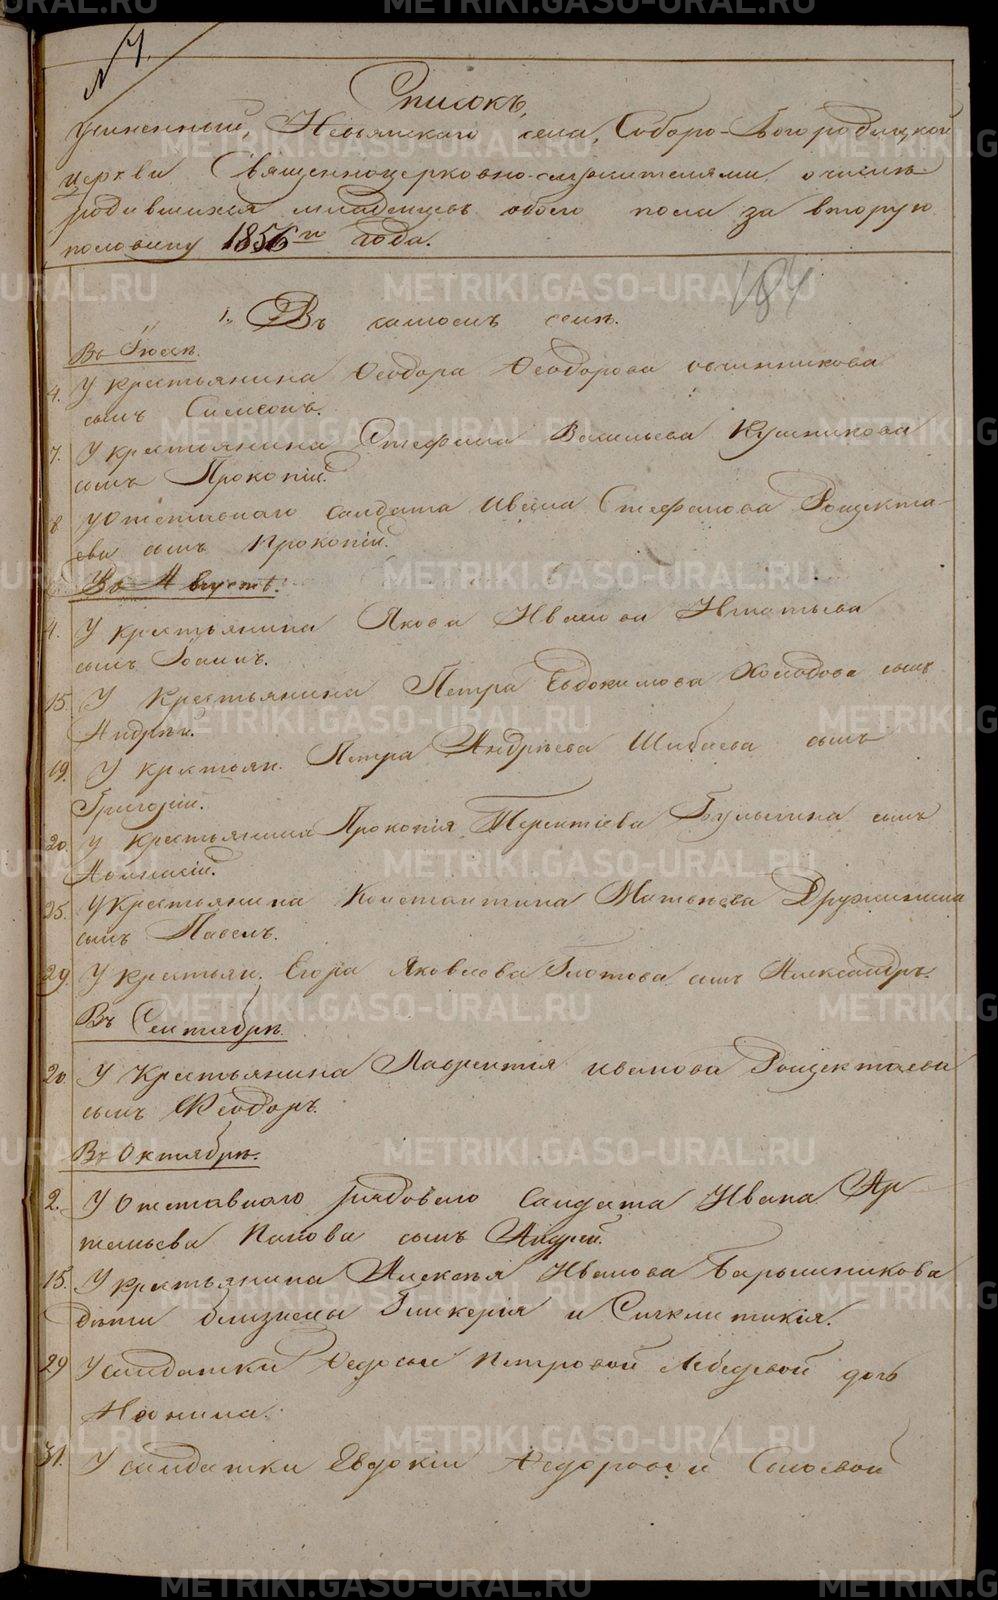 № 7.
Списокъ,
учиненный, Невьянскаго села, Соборо-Богородицкой
церкви Священноцерковно-служителями о числѣ
родившихся младенцевъ обоего пола за вторую
половину 1856го года.
184
1., Въ самомъ селѣ.
Въ Іюлѣ.
4. У крестьянина Ѳеодора Ѳеодорова Овчинникова
сынъ Симеонъ.
7. У крестьянина Стефана Васильева Кушникова
сынъ Прокопій.
8. У отставнаго солдата Ивана Стефанова Рощекта-
ева сынъ Прокопій.
Въ Августѣ.
4. У крестьянина Якова Иванова Игнатьева
сынъ Іоаннъ.
15. У Крестьянина Петра Евдокимова Холодова сынъ
Андрѣй.
19. У крестьян. Петра Андрѣева Шибаева сынъ
Григорій.
20. У крестьянина Прокопія Терентіева Булыгина сынъ
Аѳанасій.
25. У Крестьянина Константина Матвѣева Дружинина
сынъ Павелъ.
29. У крестьян. Егора Яковлева Глотова сынъ Александръ.
Въ Сентябрѣ.
20. У Крестьянина Лаврентія Иванова Рощектаева
сынъ Ѳеодоръ.
Въ Октябрѣ.
2. У Отставнаго рядоваго Солдата Ивана Ар
темьева Попова сынъ Андрей.
15. У крестьянина Алексѣя Иванова Барышникова
дѣти близнецы Гликерія и Синклитикія.
29 У солдатки Ѳедосьи Петровой Лебедевой дочь
Неонила.
31. У солдатки Евдокіи Ѳедоровой